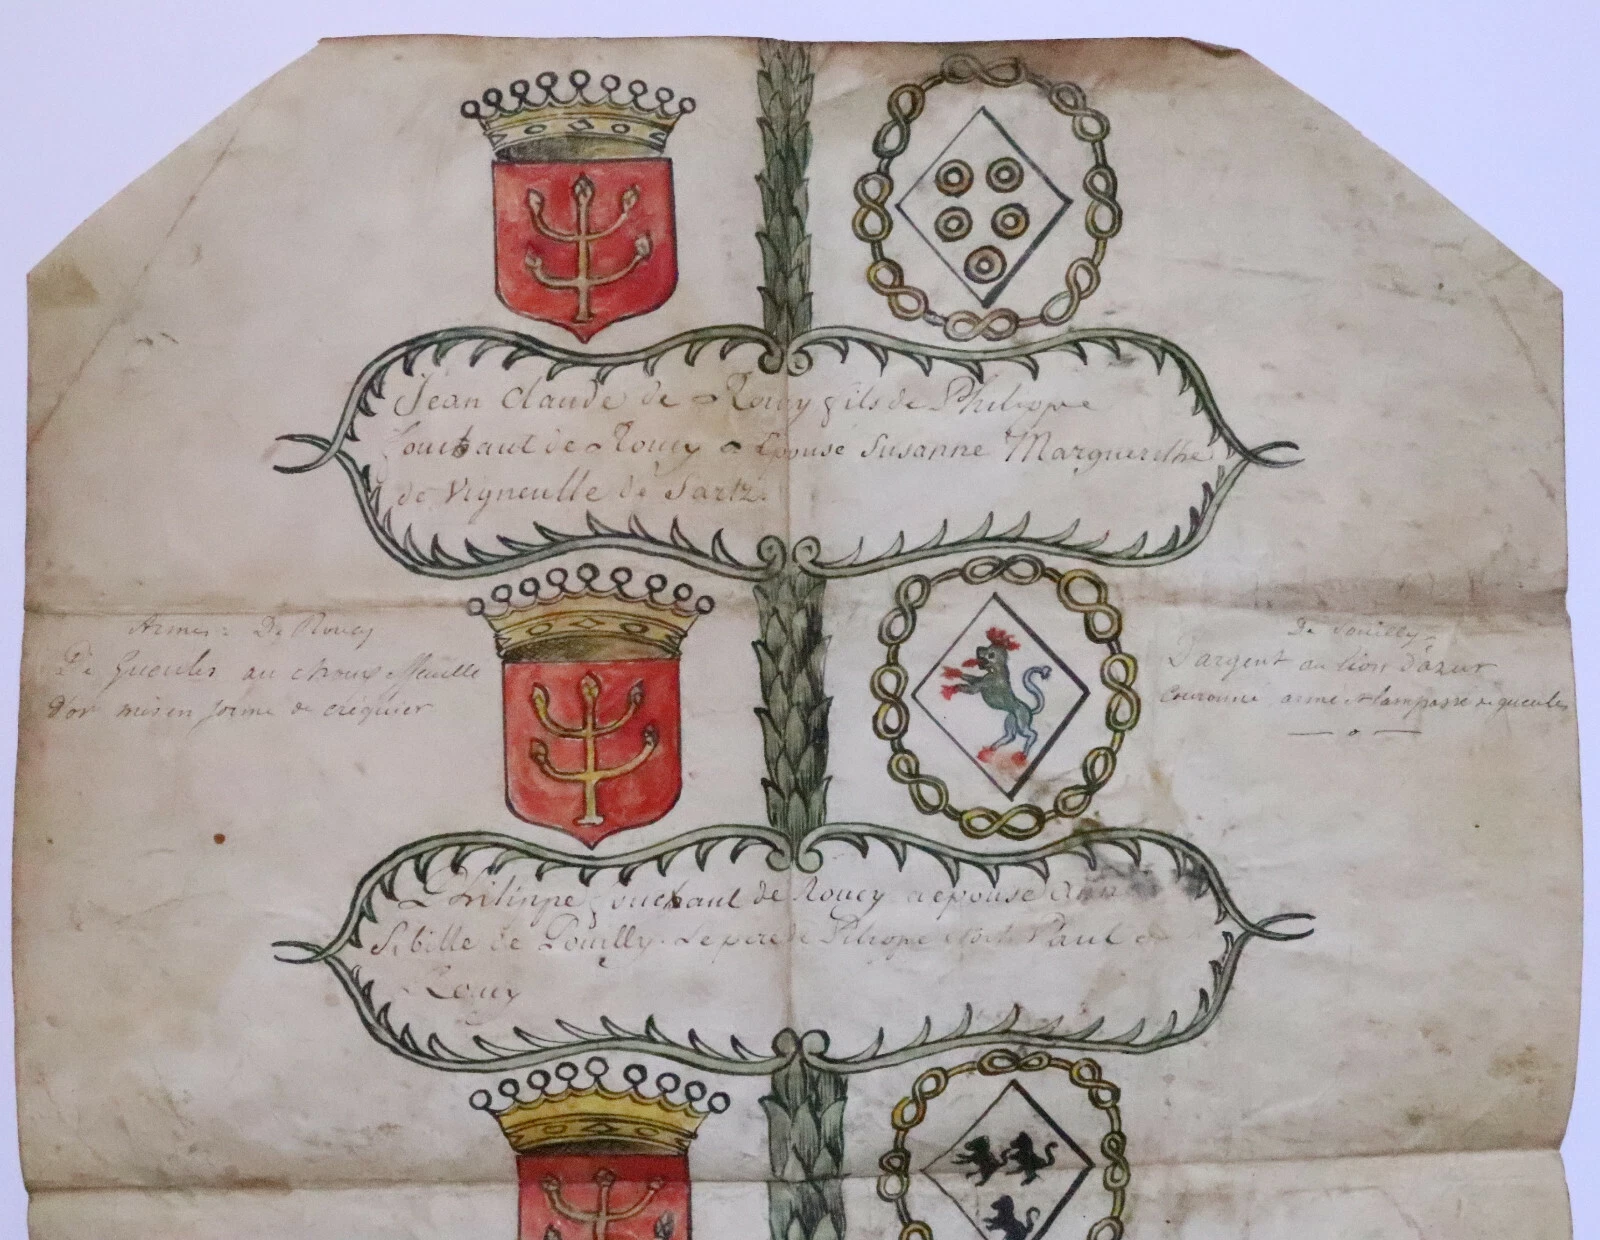 Jean Claude de Roucy fils de Philippe
fouchaut de Roucy a Epousé Susanne Marguerithe
de Vigneulle de Sartz.
Armes De Roucy
De gueules au choux effeuillé
d'or mis en forme de créquier
De Pouilly
D'argent au lion d'azur
couronné armé et lampassé de gueules
Philippe fouchaut de Roucy a epousé Ann
Sibille de Pouilly. Le pere de Philippe etoit Paul
Roucy